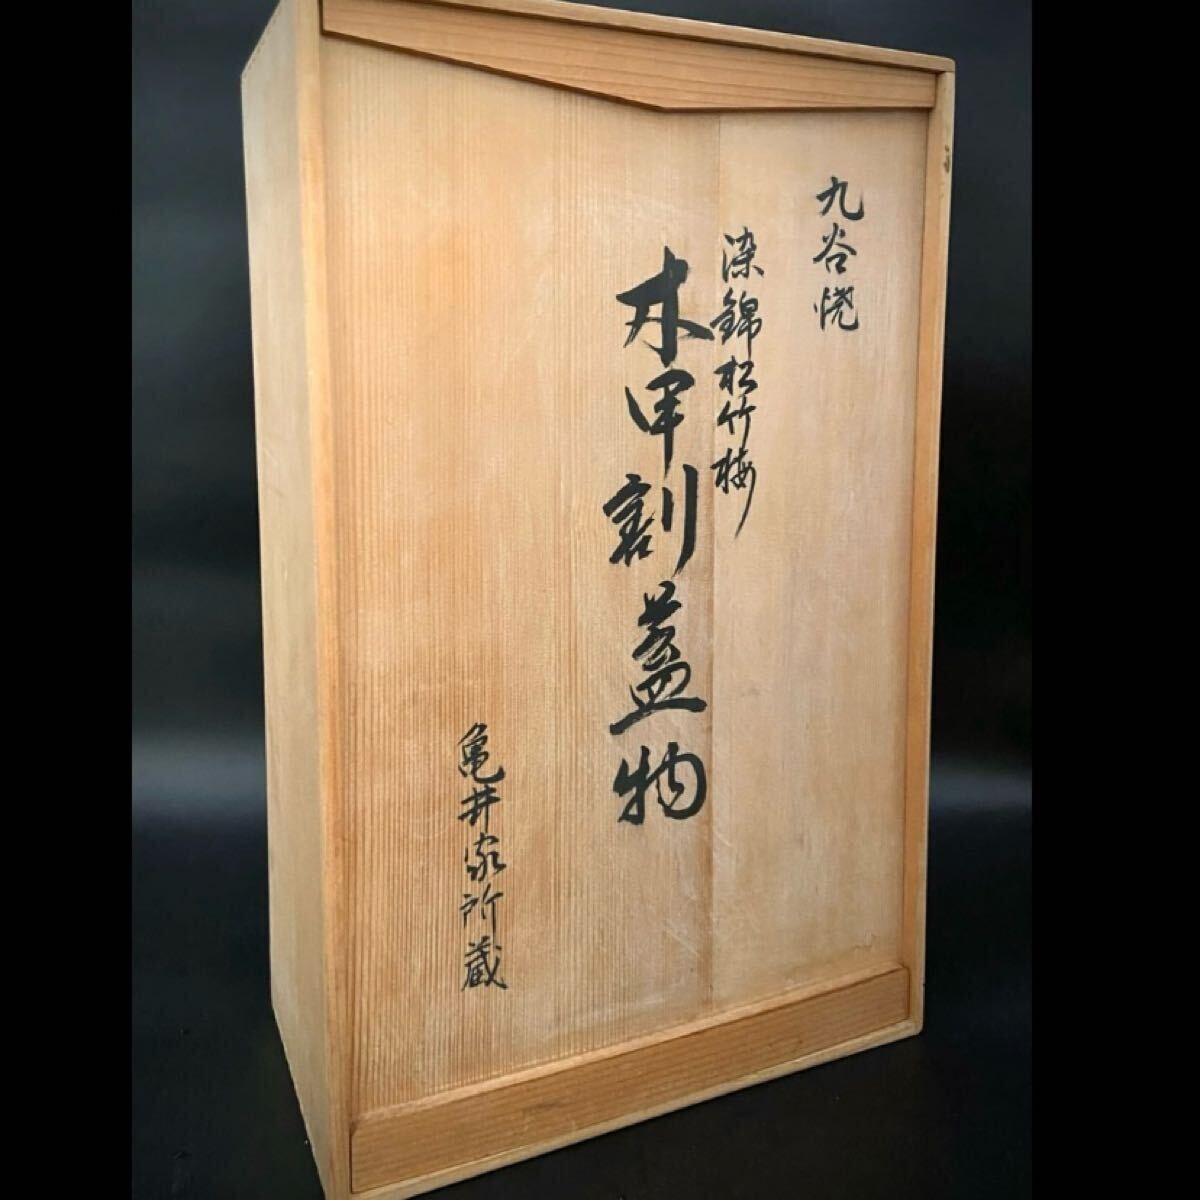 九谷焼
染錦松竹梅
木甲割蓋物
亀井家所蔵